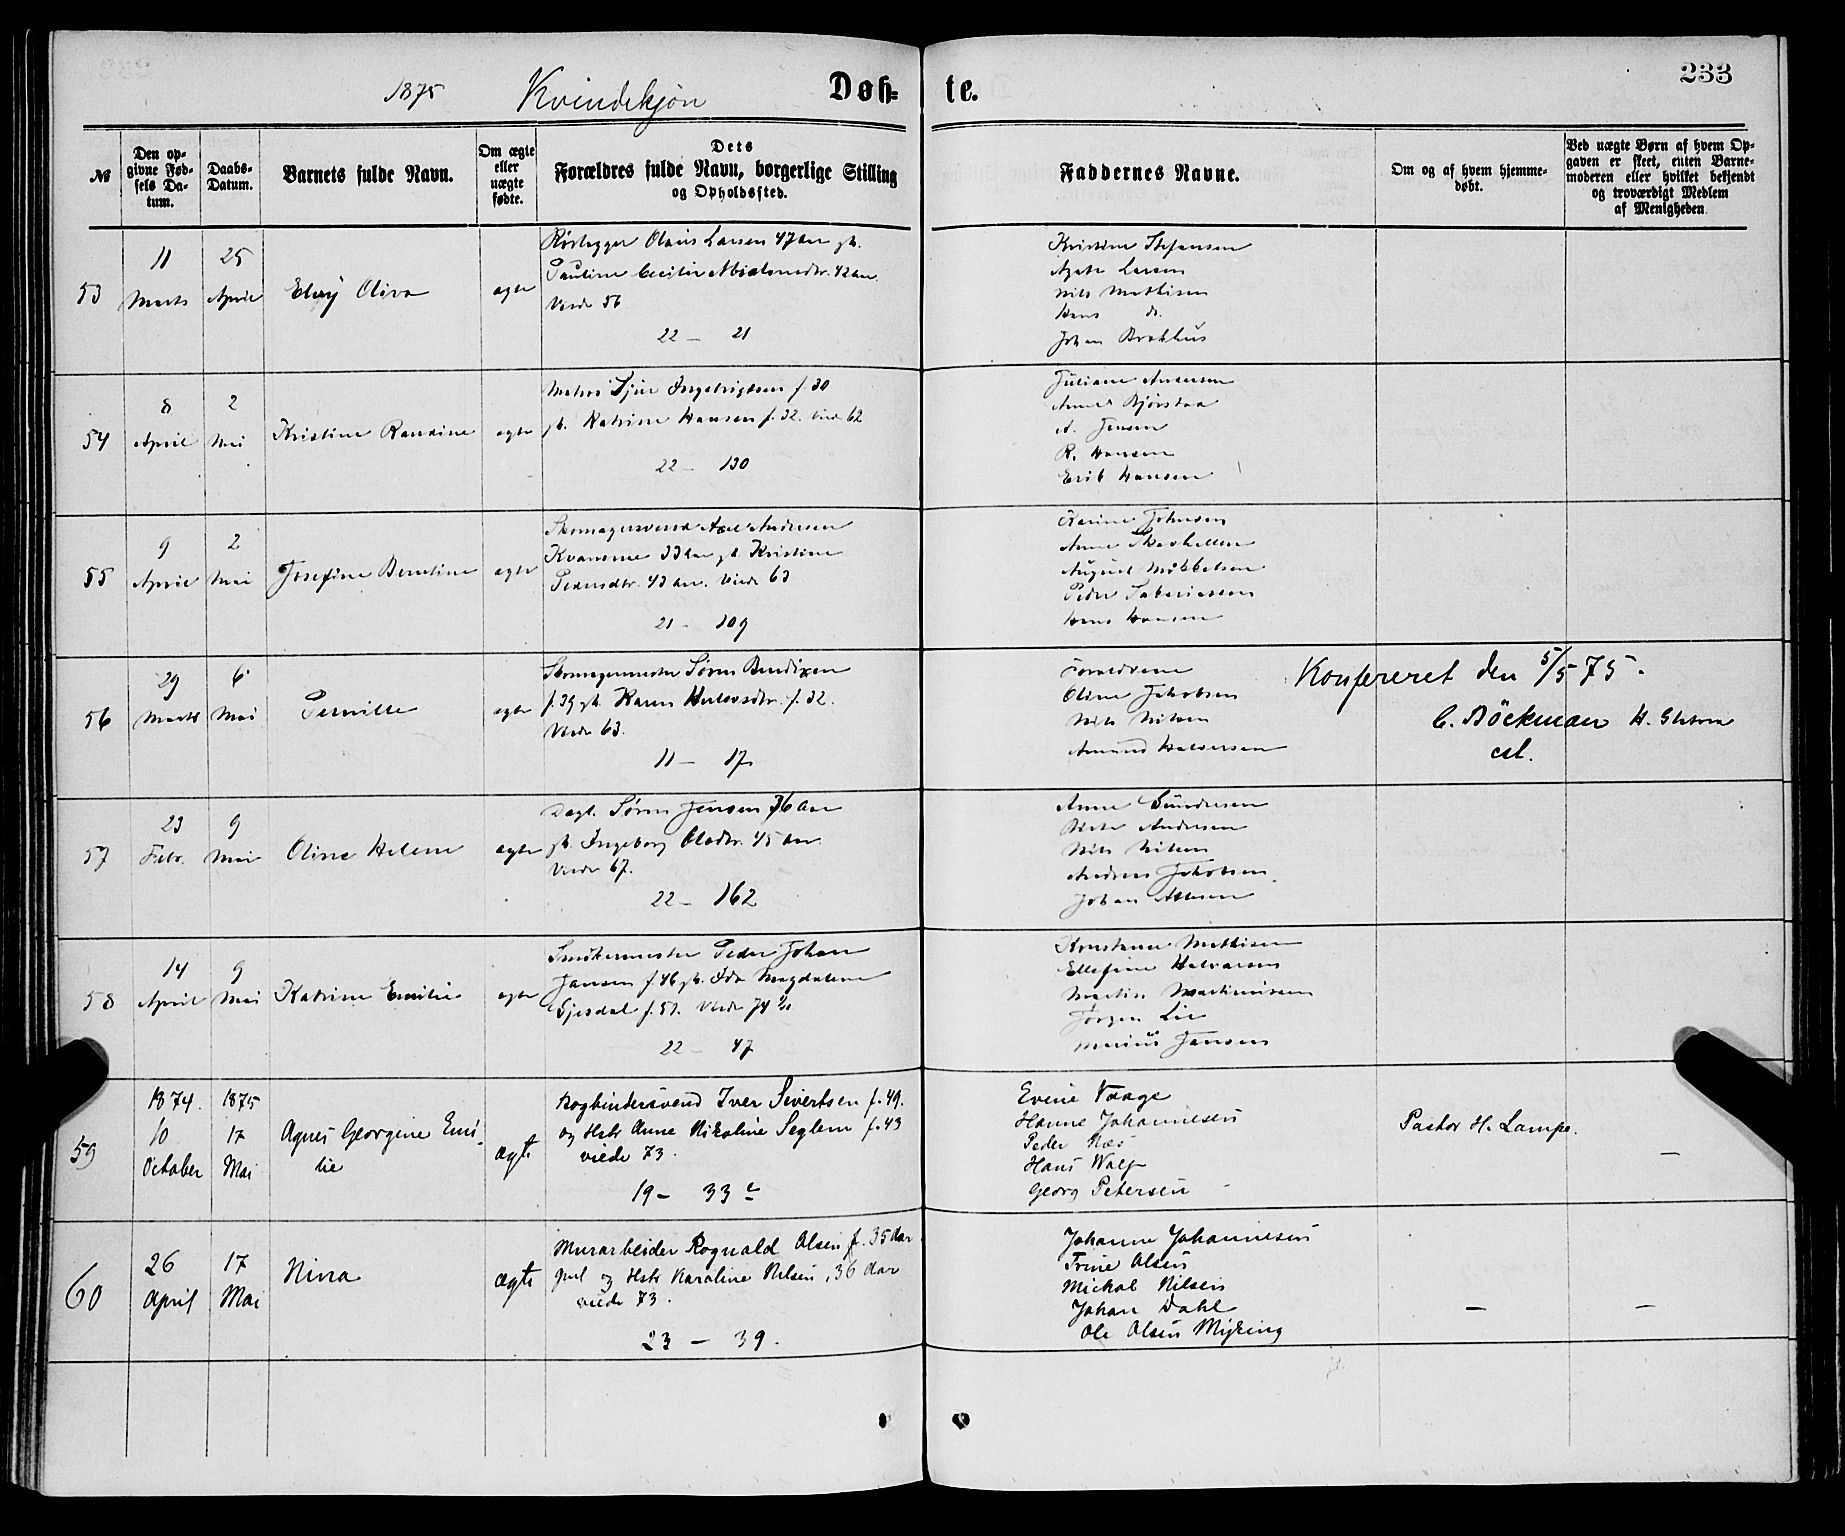 1875 Kvindekjøn Døb-te. 233
№
Den op-
givne Fød-
sels Da-
tum.
Daabs-
Datum.
Barnets fulde Navn.
Om ægte
eller
uægte
fødte.
Dets
Forældres fulde Navn, borgerlige Stilling
og Opholdssted.
Faddernes Navne.
Om og af hvem hjemme-
døbt.
Ved uægte Børn af hvem Op-
gaven er skeet, enten Barne-
moderen eller hvilket bekjendt
og troværdigt Medlem
af Menigheden
53
11
Marts
25
April
Oliva
ægte
Olaus Larsen 47 Aar gb.
Pauline Cecilie 42 aar
Viede 56
22 - 21
Kristine Stefansen
Agate Larsen
Nils Mathisen
Hans do.
Johan
54
8
April
2
Mai
Kristine
ægte
f. 30
gb. Katrine Hansen f. 32. Viede 62
22 - 130
Juliane Andersen
Anne
A. Jensen
R. Hansen
Erik Hansen
55
9
April
2
Mai
Josefine Berntine
ægte
Skomagersvend Axel Andersen
33 Aar gb. Kristine
Pedersdtr. 43 aar. Viede 63
21 - 109
Karine Johnsen
Anne
August Mikkelsen
Peder
Hans Hansen
56
29
Marts
6
Mai
Pernille
ægte
Skomagermester Søren Bendixen
f. 39 gb. Karen f. 32.
Viede 63.
11 - 17
Forældrene
Oline Jakobsen
Nils Nilsen
Amund Halvorsen
Konfereret den 5/5 75.
C. Böckman
cst.
57
23
Febr.
9
Mai
Oline Helene
ægte
Dagl. Søren Jensen 36 Aar
gb. Ingeborg Olsdtr. 45 Aar
Viede 67.
22 - 162
Anne Gundersen
Andersen
Nils Nilsen
Andreas Jakobsen
Johan
58
14
April
9
Mai
Katrine Emilie
ægte
Snedkermester Peder Johan
Jansen f. 46 gb. Ida Magdalene
Gjesdal f. 51. Viede 74
22 - 47
Konstanse Mathisen
Ellefine Halvorsen
Martin Martinius
Jørgen Lie
Marius Jansen
59
1874.
10
October
1875
17
Mai
Agnes Georgine Emi-
lie
ægte
Bogbindersvend Iver Sivertsen f. 49.
og Hstr Anne Nikoline Seglem f. 43
viede 73.
19 - 33 c
Evine Vaage
Hanne Johannesen
Peder Næs
Hans Wolf
Georg Petersen
Pastor H. Lampe.
—
60
26
April
17
Mai
Nina
ægte
Murarbeider Rognald Olsen f. 35 Aar
og Hstr Karoline Nilsen, 36 Aar
viede 73.
23 - 39.
Johanne Johannesen
Trine Olsen
Mickal Nilsen
Johan Dahl
Ole Olsen Myking
—
—